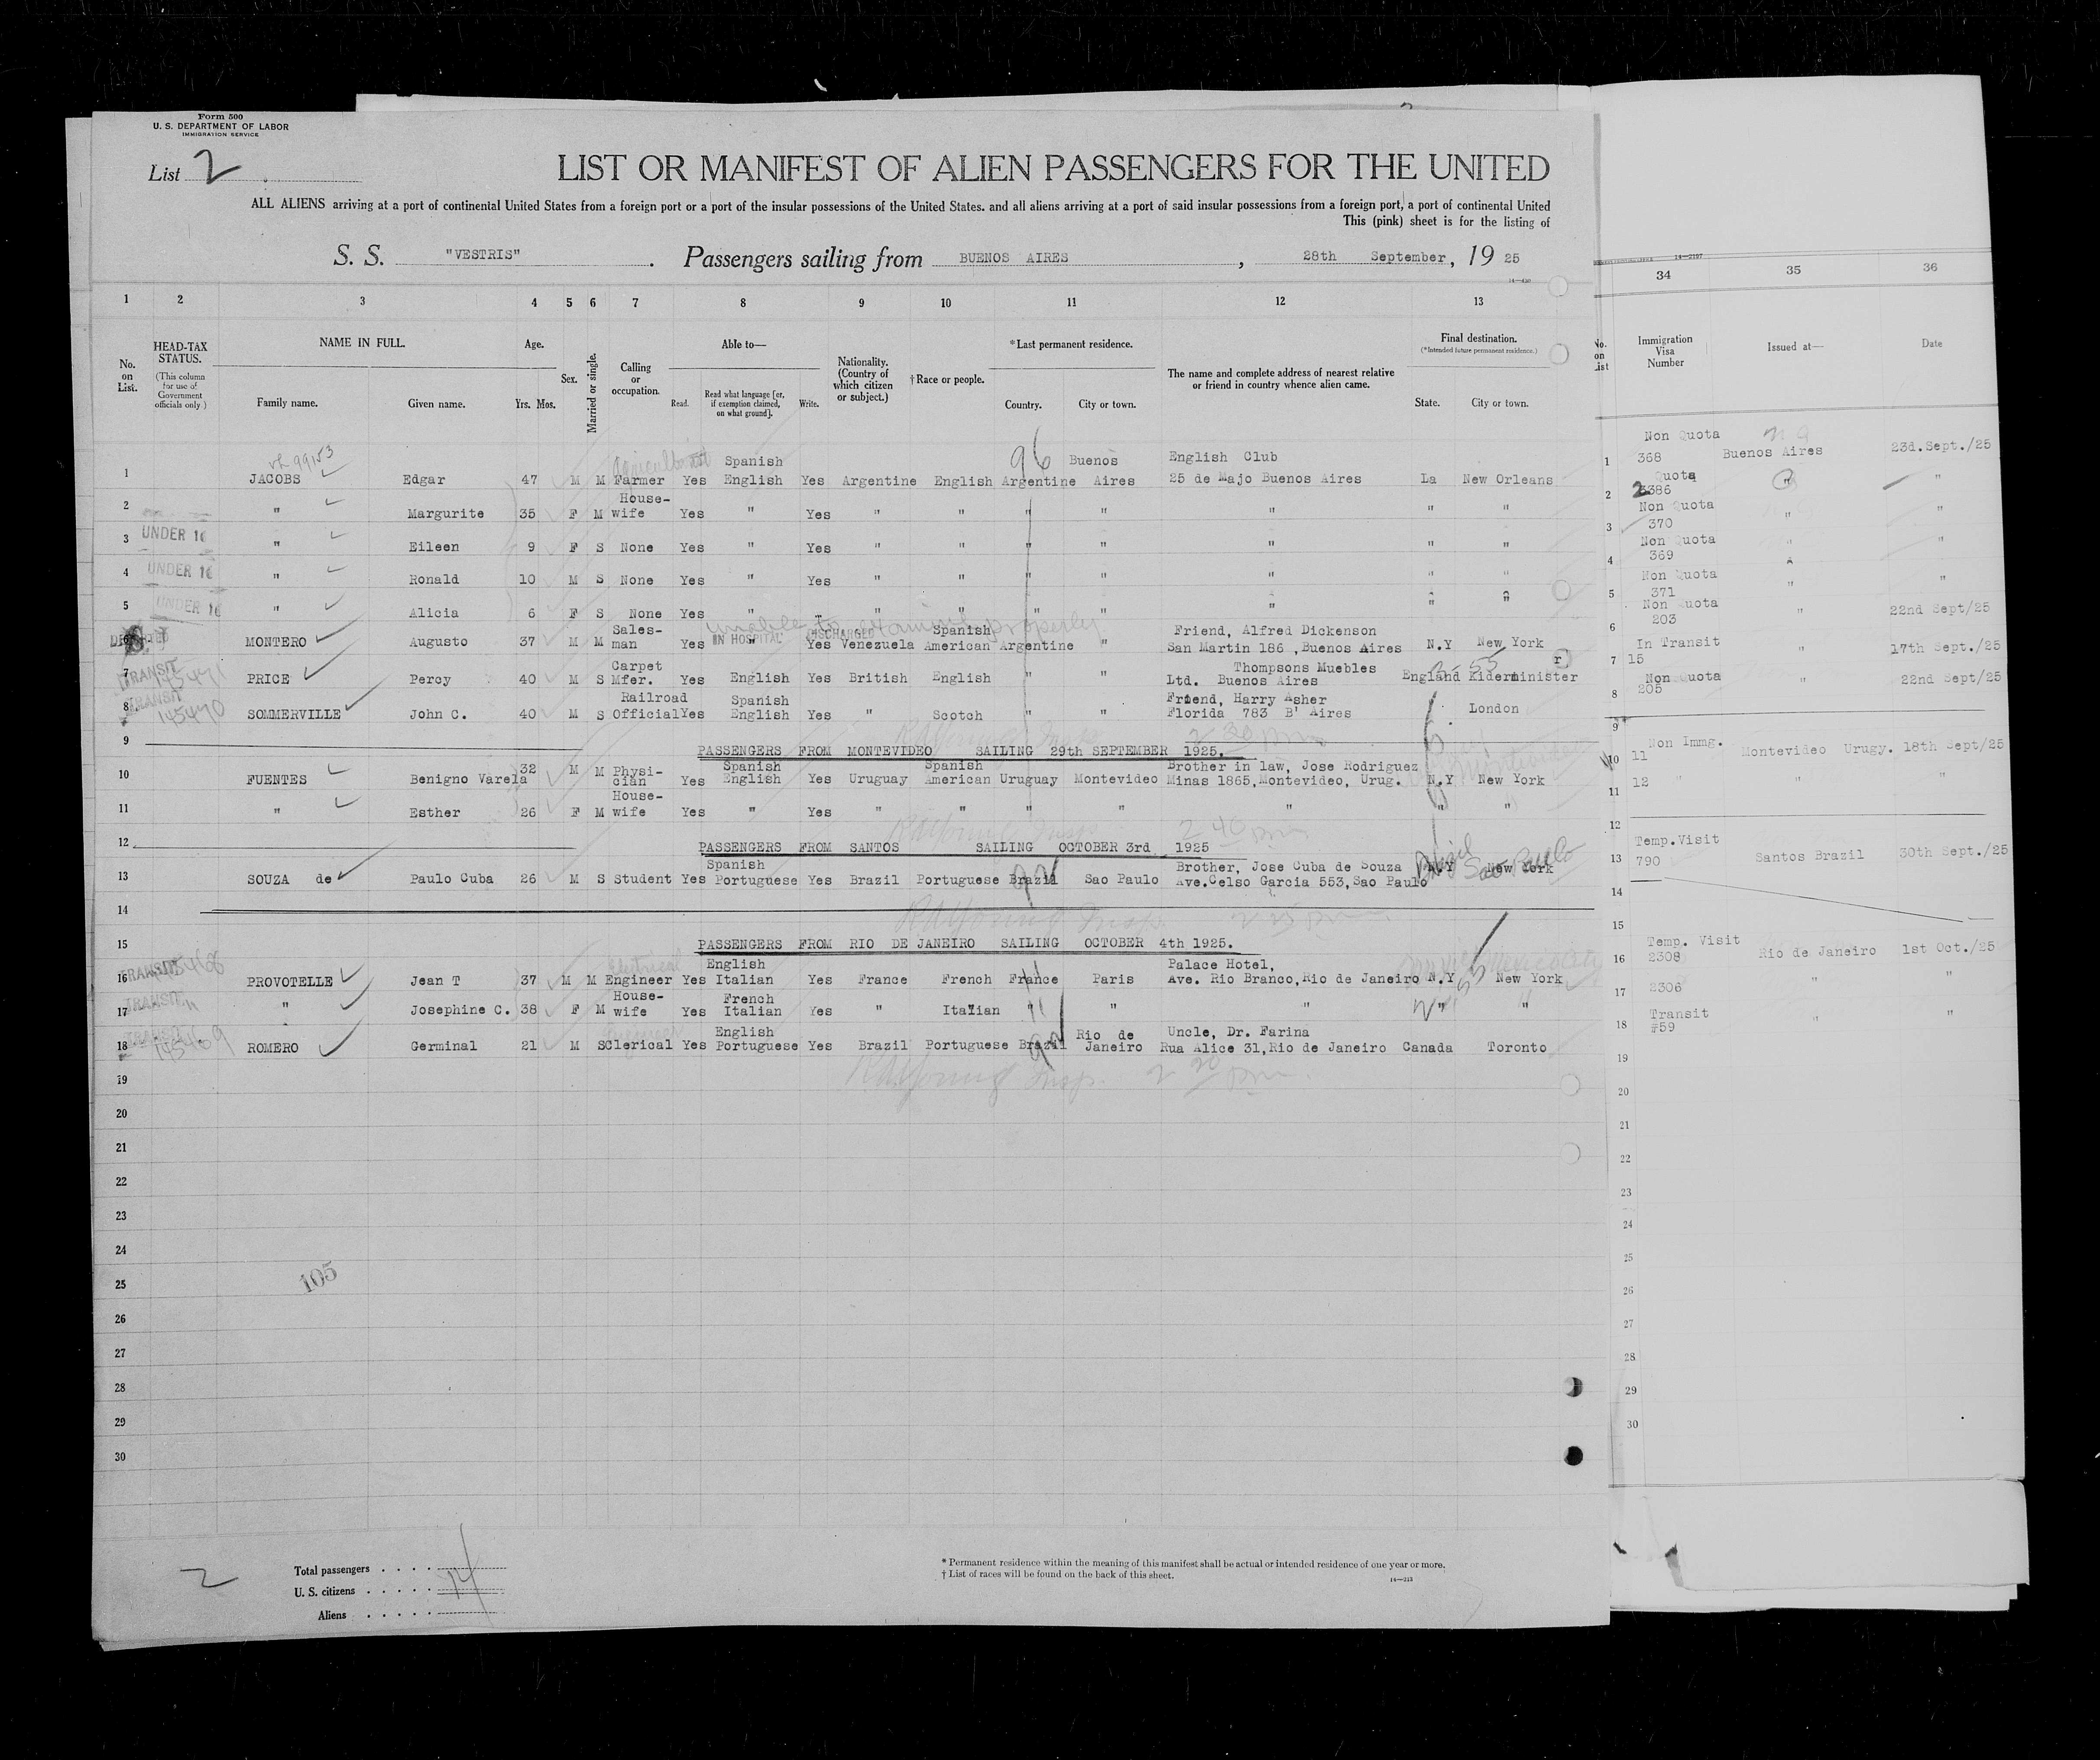 Form 500
U. S. DEPARTMENT OF LABOR
IMMIGRATION SERVICE
List 2
LIST OR MANIFEST OF ALIEN PASSENGERS FOR THE UNITED
ALL ALIENS arriving at a port of continental United States from a foreign port or a port of the insular possessions of the United States, and all aliens arriving at a port of said insular possessions from a foreign port, a port of continental United
This (pink) sheet is for the listing of
S. S. "VESTRIS" . Passengers sailing from BUENOS AIRES , 28th September, 19 25
1 2 3 4 5 6 7 8 9 10 11 12 13 34 35 36
No. on List.
HEAD-TAX STATUS.
(This column for use of Government officials only.)
NAME IN FULL.
Family name. Given name.
Age.
Yrs. Mos.
Sex.
Married or single.
Calling or occupation.
Able to—
Read. Read what language [or, if exemption claimed, on what ground]. Write.
Nationality. (Country of which citizen or subject.)
† Race or people.
*Last permanent residence.
Country. City or town.
The name and complete address of nearest relative or friend in country whence alien came.
Final destination.
(*Intended future permanent residence.)
State. City or town.
No. on List
Immigration Visa Number
Issued at—
Date
1 JACOBS Edgar 47 M M Farmer Yes Spanish English Yes Argentine English Argentine Buenos Aires English Club 25 de Majo Buenos Aires La New Orleans
2 " Margurite 35 F M House-wife Yes " Yes " " " " " " "
3 UNDER 16 " Eileen 9 F S None Yes " Yes " " " " " " "
4 UNDER 16 " Ronald 10 M S None Yes " Yes " " " " " " "
5 UNDER 16 " Alicia 6 F S None Yes " " " " " " " "
unable to examine properly
IN HOSPITAL DISCHARGED
MONTERO Augusto 37 M M Sales-man Yes " Yes Venezuela Spanish American Argentine " Friend, Alfred Dickenson San Martin 186 ,Buenos Aires N.Y New York
7 TRANSIT 145471 PRICE Percy 40 M S Carpet Mfer. Yes English Yes British English " " Thompsons Muebles Ltd. Buenos Aires England Kiderminister
8 TRANSIT 145470 SOMMERVILLE John C. 40 M S Railroad Official Yes Spanish English Yes " Scotch " " Friend, Harry Asher Florida 783 B' Aires London
9
PASSENGERS FROM MONTEVIDEO SAILING 29th SEPTEMBER 1925.
10 FUENTES Benigno Varela 32 M M Physi-cian Yes Spanish English Yes Uruguay Spanish American Uruguay Montevideo Brother in law, Jose Rodriguez Minas 1865,Montevideo, Urug. N.Y New York
11 " Esther 26 F M House-wife Yes " Yes " " " " " " "
2 40 pm
12
PASSENGERS FROM SANTOS SAILING OCTOBER 3rd 1925
13 SOUZA de Paulo Cuba 26 M S Student Yes Spanish Portuguese Yes Brazil Portuguese Brazil Sao Paulo Brother, Jose Cuba de Souza Ave.Celso Garcia 553,Sao Paulo N.Y New York
Brazil Sao Paulo
14
15
PASSENGERS FROM RIO DE JANEIRO SAILING OCTOBER 4th 1925.
16 TRANSIT PROVOTELLE Jean T 37 M M Engineer Yes English Italian Yes France French France Paris Palace Hotel, Ave. Rio Branco,Rio de Janeiro N.Y New York
17 TRANSIT " Josephine C. 38 F M House-wife Yes French Italian Yes " Italian " " " " "
18 TRANSIT 145469 ROMERO Germinal 21 M S Clerical Yes English Portuguese Yes Brazil Portuguese Brazil Rio de Janeiro Uncle, Dr. Farina Rua Alice 31,Rio de Janeiro Canada Toronto
2 20 pm.
19
20
21
22
23
24
25
105
26
27
28
29
30
2
Total passengers . . . .
U. S. citizens . . . . .
Aliens . . . . .
* Permanent residence within the meaning of this manifest shall be actual or intended residence of one year or more.
† List of races will be found on the back of this sheet.
1 Non Quota 368 Buenos Aires 23d.Sept./25
2 Quota " "
3 Non Quota 370 " "
4 Non Quota 369 " "
5 Non Quota 371 " "
6 Non Quota 203 " 22nd Sept/25
7 In Transit 15 " 17th Sept./25
8 Non Quota 205 " 22nd Sept/25
9
10 Non Immg. 11 Montevideo Urugy. 18th Sept/25
11 12 " " "
12
13 Temp.Visit 790 Santos Brazil 30th Sept./25
14
15
16 Temp. Visit 2308 Rio de Janeiro 1st Oct./25
17 2306 " "
18 Transit #59 " "
19
20
21
22
23
24
25
26
27
28
29
30